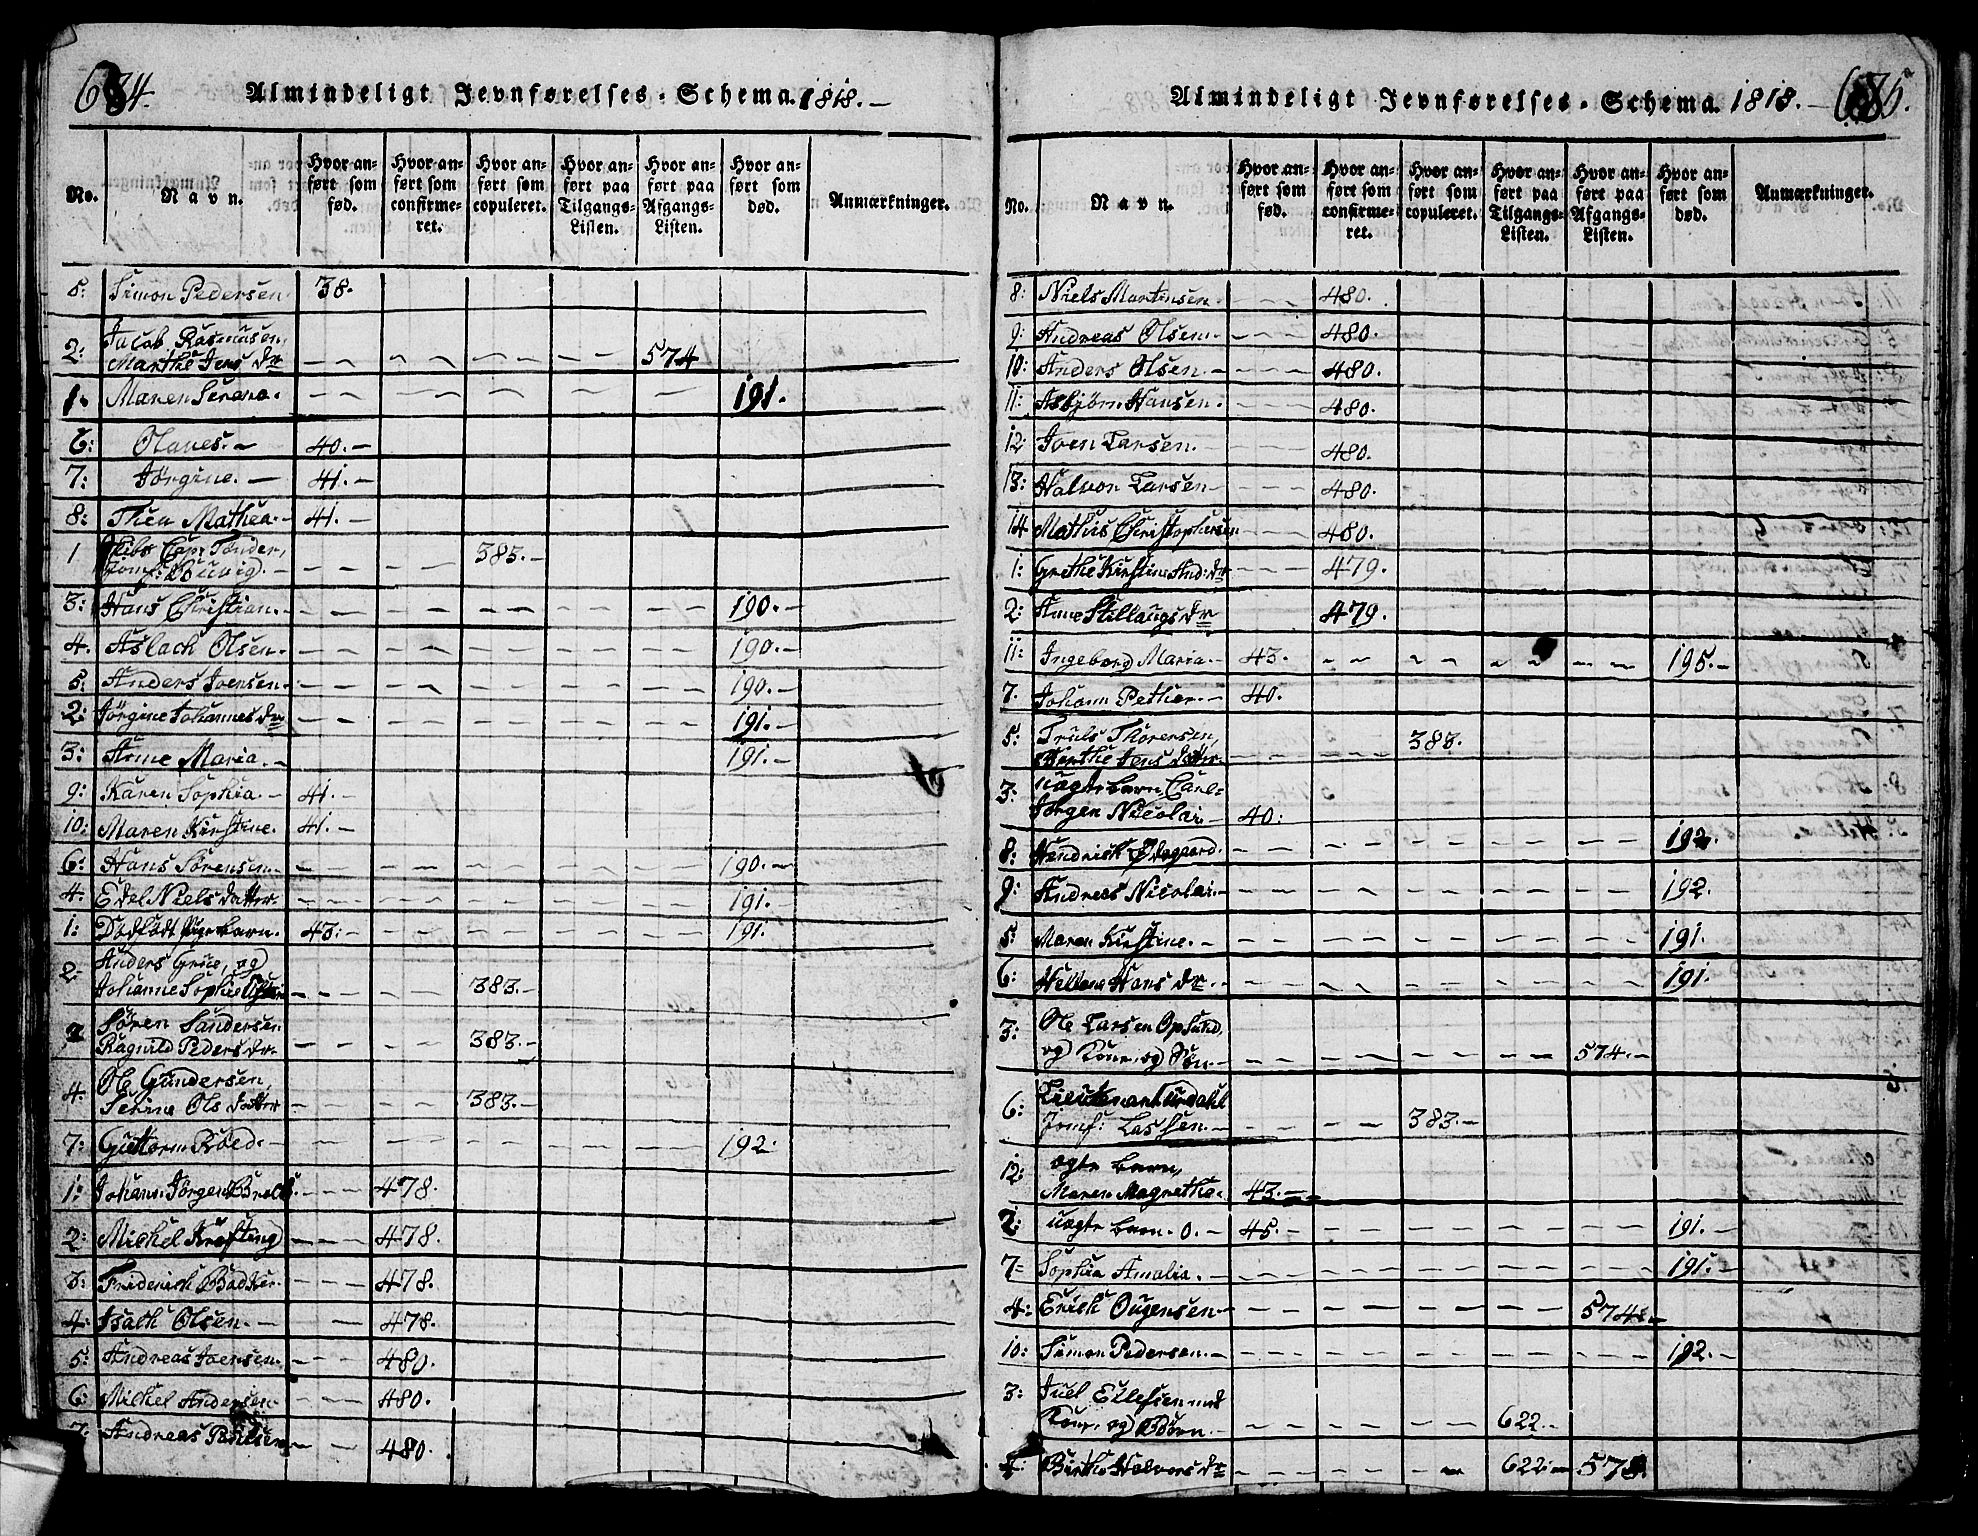 684. Almindeligt Jevnførelses-Schema. 1818.-
No. Navn. Hvor anført som fød. Hvor anført som confirmeret. Hvor anført som copuleret. Hvor anført paa Tilgangs-Listen. Hvor anført paa Afgangs-Listen. Hvor anført som død. Anmærkninger.
5: Simon Pedersen. 38.
Jacob Rasmusen,
2: Marthe Jens dr 574
1. Maren Serena. 191.
6: Olaves. 40.
7: Jörgine. 41.
8: Thea Mathea. 41.
1 Capt Tönder,
Jomf: 383.
3: Hans Christian. 190.
4. Aslach Olsen. 190.
5: Anders Joensen. 190.
2: Jörgine Johannes dr 191.
3: Anne Maria. 191.
9: Karen Sophia. 41.
10: Maren Kirstine. 41.
6: Hans Sörensen. 190.
4: Edel Niels datter. 191.
1: Dödfödt Pigebarn. 43: 191.
Anders Grüe, og
2 Johanne Sophie 383.
Sören Sandersen
Ragnild Peders dr 383.
Ole Gundersen,
4. Serine Ols datter 383.
7: Guttorm Röed. 192
1: Johan Jörgen 478.
2: Michel Krefting 478.
3: Friderich Bödker 478.
4: Isach Olsen. 478.
5: Andreas Joensen 480.
6: Michel Andersen 480.
7: Andreas Poulsen 480.
685. Almindeligt Jevnførelses-Schema. 1818.-
No. Navn. Hvor anført som fød. Hvor anført som confirmeret. Hvor anført som copuleret. Hvor anført paa Tilgangs-Listen. Hvor anført paa Afgangs-Listen. Hvor anført som død. Anmærkninger.
8: Niels Martinsen. 480.
9: Andreas Olsen. 480.
10: Anders Olsen. 480.
11: Asbjörn Hansen. 480.
12: Joen Larsen. 480.
13: Halvor Larsen 480.
14 Mathis Christophersen 480.
1: Grethe Kirstine And: dr 479.
2: Anne Stillaugs dr 479.
11: Ingeborg Maria. 43. 195.
7. Johann Pether. 40.
5: Truls Thoresen,
Berthe Jens datter. 383.
3: uägte barn Carl
Jörgen Nicolai. 40.
8: Hendrich Ödegaard. 192.
9: Andreas Nicolai. 192.
5: Maren Kirstine. 191.
6: Hellene Hans dr 191.
3: Ole Larsen Opsund
og Kone, og Sön 574.
6: Lieutenant Urdahl
Jomf: Lassen. 383.
12: ægte barn,
Maren Magrethe. 43.
2: uægte barn. 0. 45. 191.
7 Sophia Amalia. 191.
4: Erich Ougensen 574.
10: Simon Pedersen. 192.
3: Juel Ellefsen med
Kone, og Börn. 622.
Birthe Halvors dr 622. 574